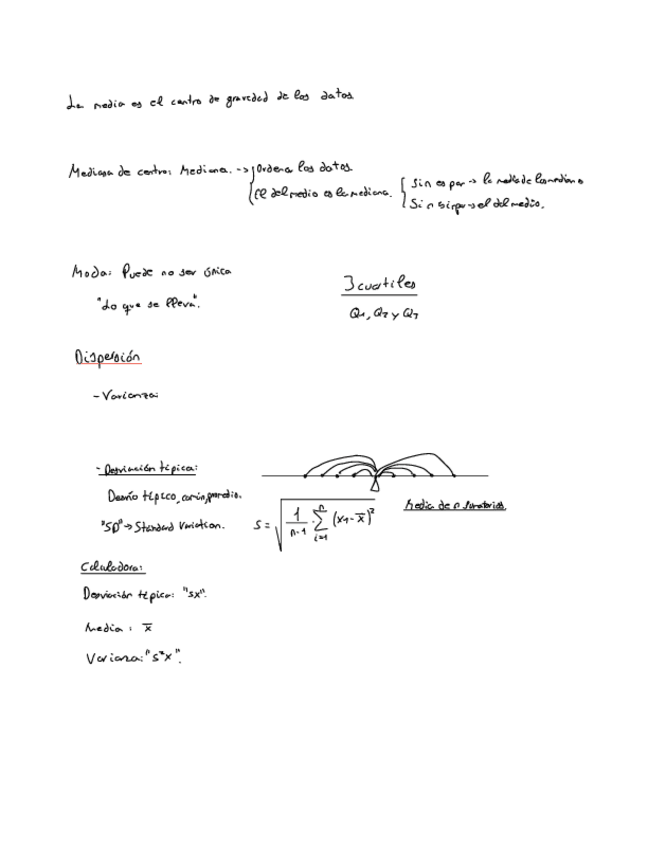 La media es el centro de gravedad de los datos
Medidas de centro: Mediana. -> Ordena los datos
El del medio es la mediana.
Si n es par -> la media de los medianos
Si n impar -> el del medio.
Moda: Puede no ser única
"Lo que se lleva".
3 cuartiles
Q1, Q2 y Q3
Dispersión
- Varianza:
- Desviación típica:
Desvío típico, común, promedio.
"SD" -> Standard Variation.
S = √ 1/n-1 · Σ i=1 n (x1 - x̄)²
Media de n sumatorios.
Calculadora:
Desviación típica: "sx".
Media: x̄
Varianza: "s²x".